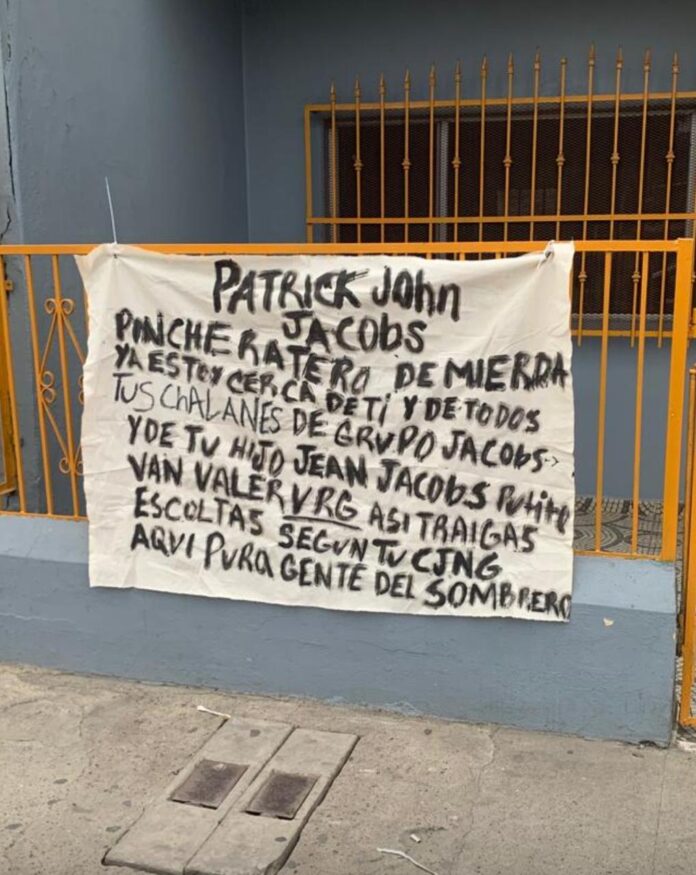 PATRICK JOhN
JACObS
PINCHE RATERO DE MIERDA
YA ESTOY CERCA DE TI Y DE TODOS
TUS ChALANES DE GRUPO JACObS->
Y DE TU HIJO JEAN JACObS Putito
VAN VALER VRG ASI TRAIGAS
ESCOLTAS SEGUN TU CJNG
AQUI PURA GENTE DEL SOMBRERO